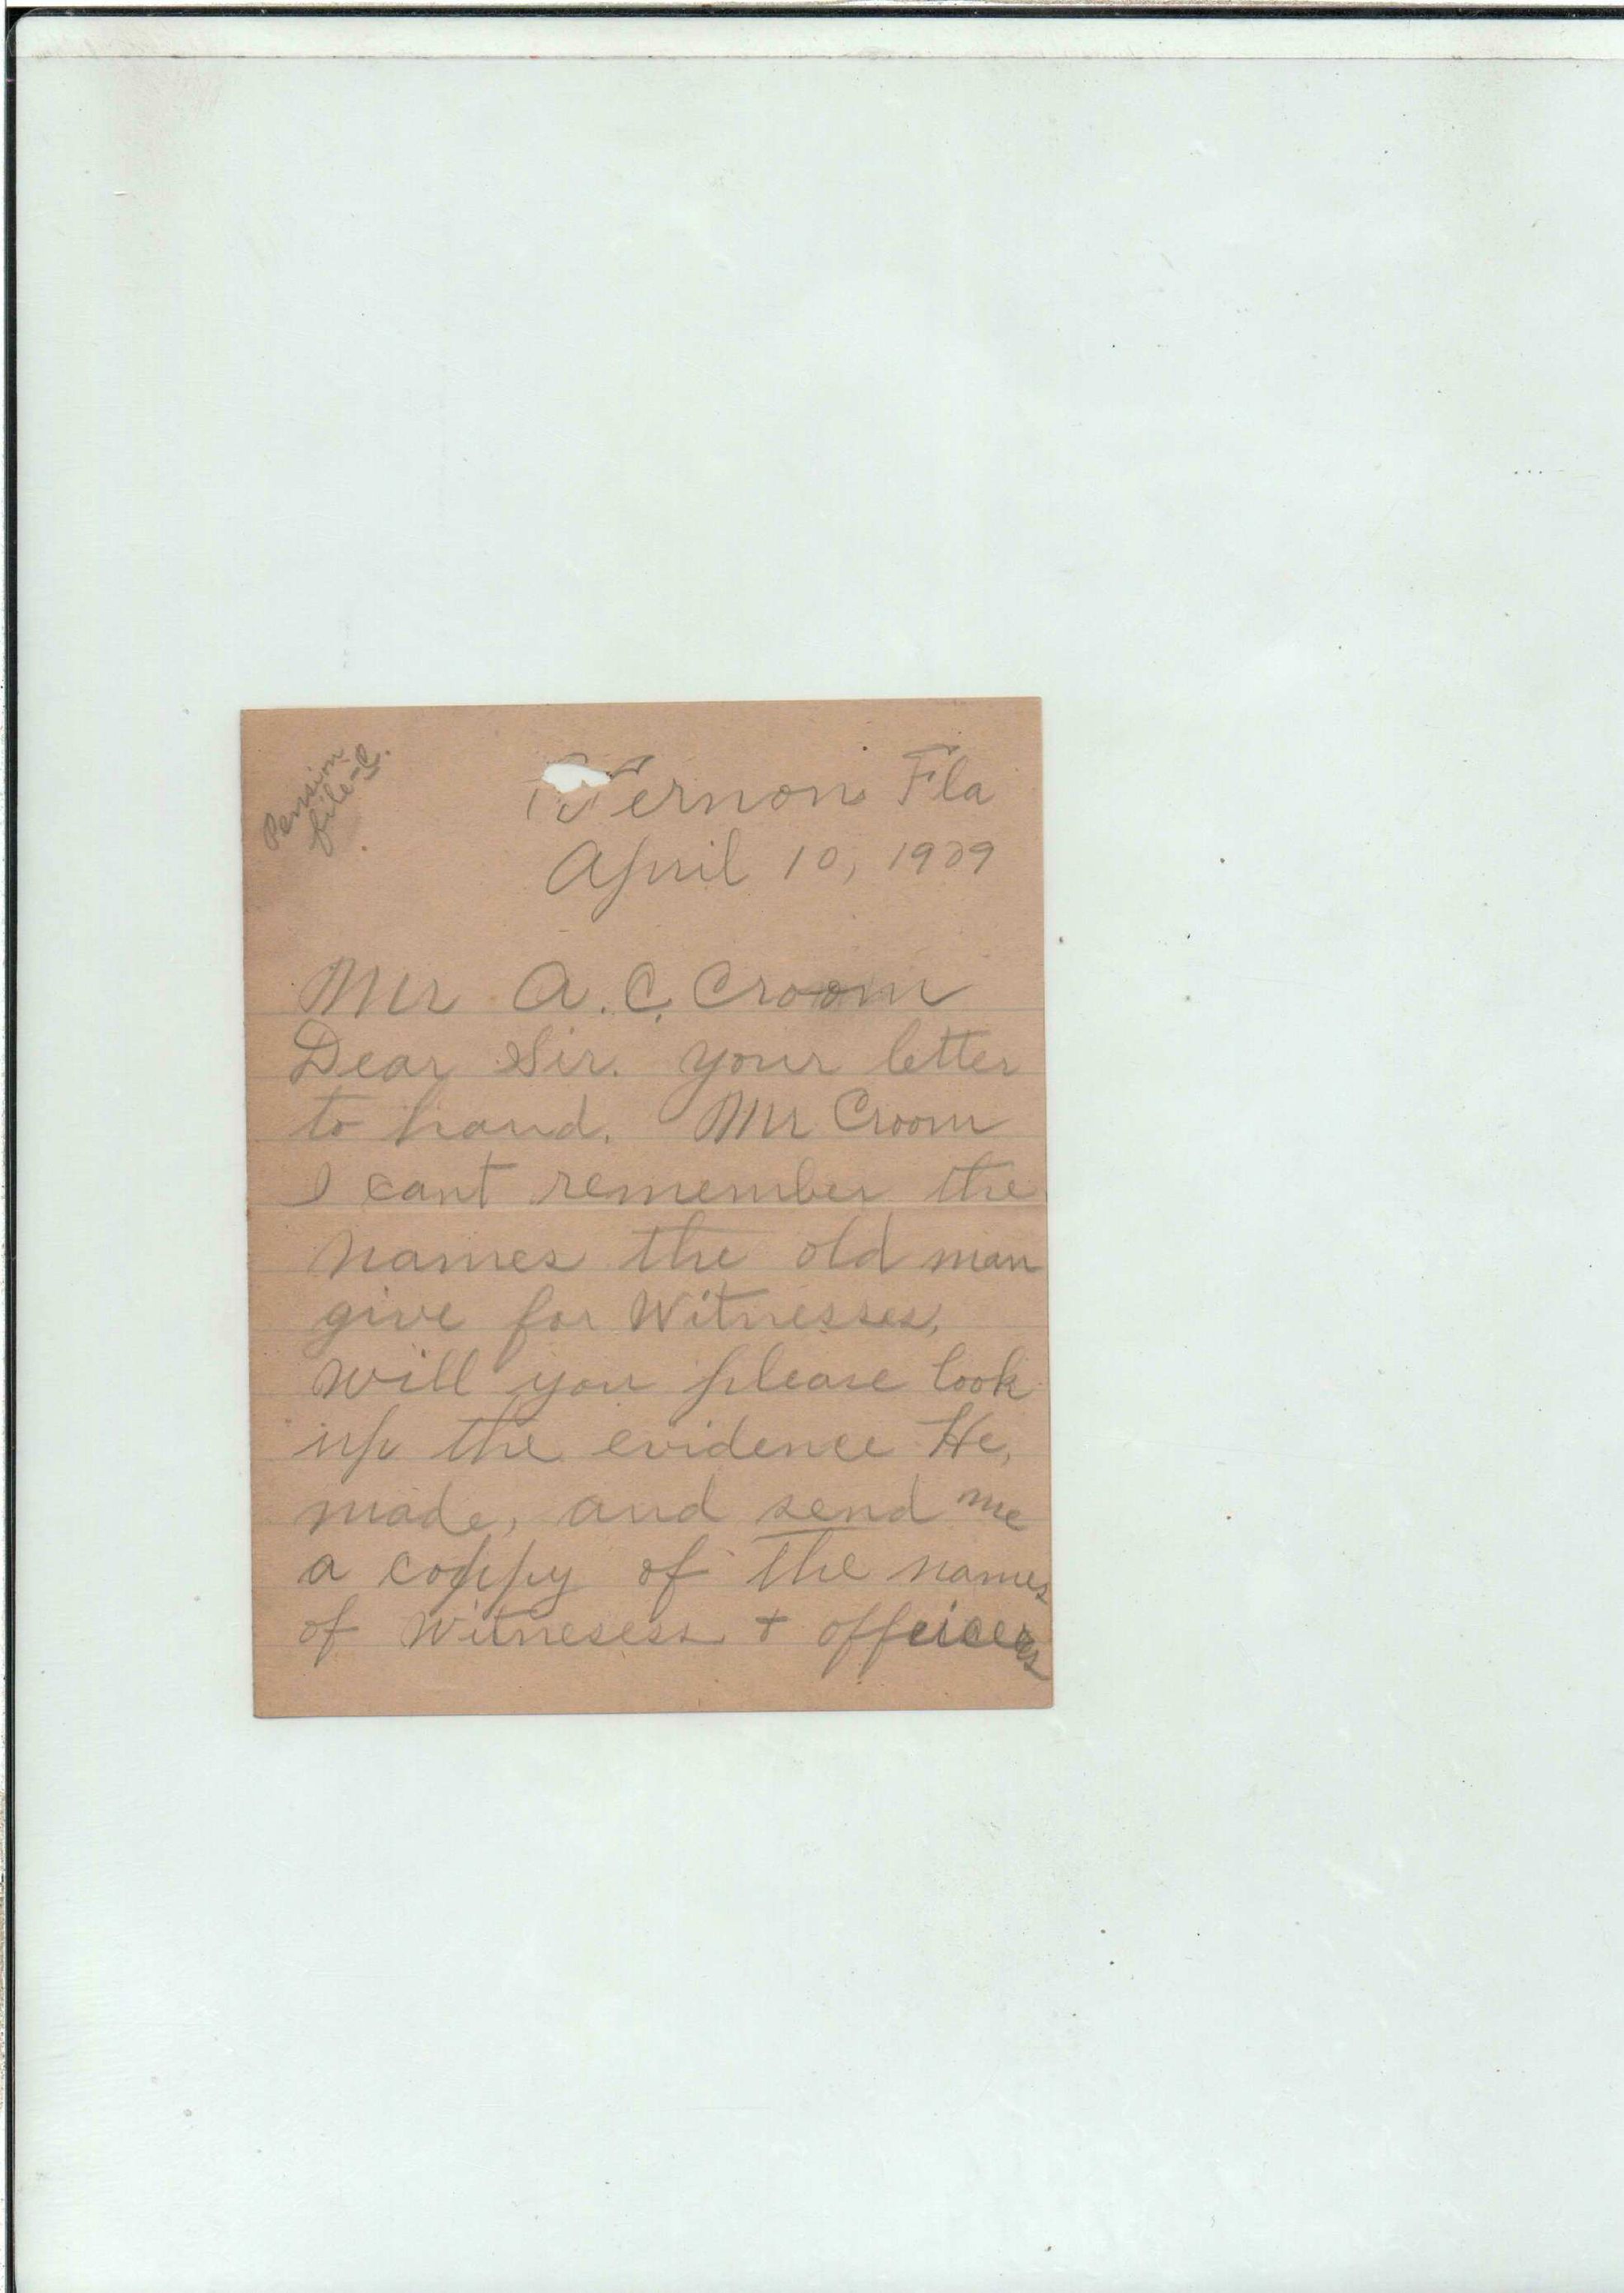 Pension
file-C.
Vernon Fla
April 10, 1909
Mr A. C. Croom
Dear Sir. your letter
to hand. Mr Croom
I cant remember the
names the old man
give for Witnesses,
will you please look
up the evidence He,
made, and send me
a coppy of the names
of Witnesess + officers